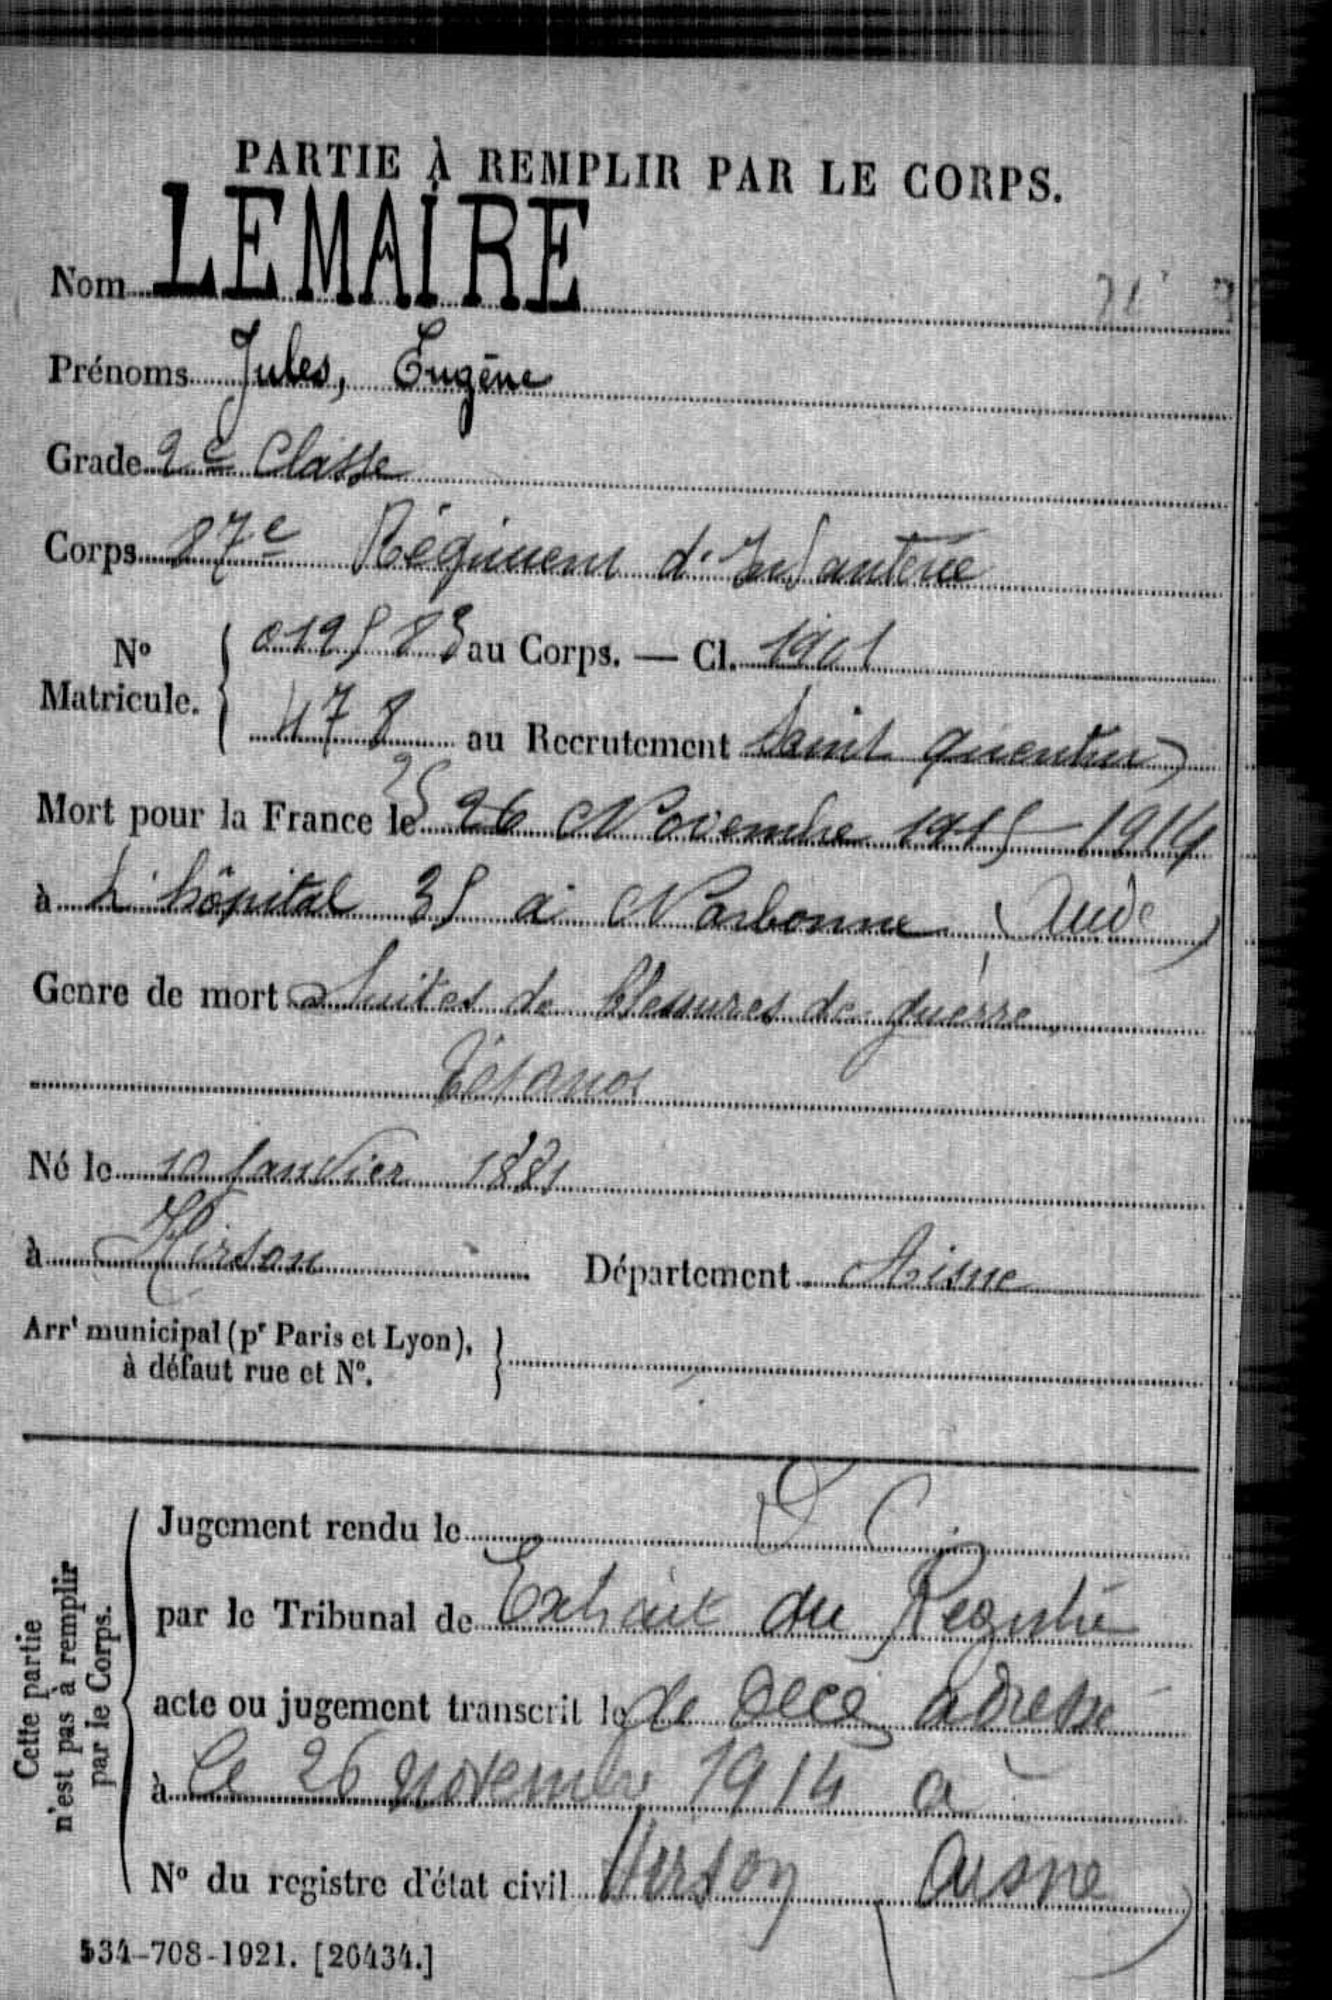 PARTIE À REMPLIR PAR LE CORPS.
Nom LEMAIRE
Prénoms Jules, Eugène
Grade 2e Classe
Corps 87e Régiment d'Infanterie
No Matricule. 019583 au Corps. — Cl. 1901
478 au Recrutement Saint Quentin
25
Mort pour la France le 26 Novembre 1915 1914
à L'hôpital 35 à Narbonne (Aude)
Genre de mort Suites de blessures de guerre
Tétanos
Né le 10 Janvier 1881
à Hirson Département Aisne
Arrt municipal (pr Paris et Lyon),
à défaut rue et No.
Cette partie
n'est pas à remplir
par le Corps.
Jugement rendu le
par le Tribunal de Extrait du Registre
acte ou jugement transcrit le de Décè adressé
à le 26 novembre 1914 a
No du registre d'état civil Hirson Aisne
534-708-1921. [26434.]